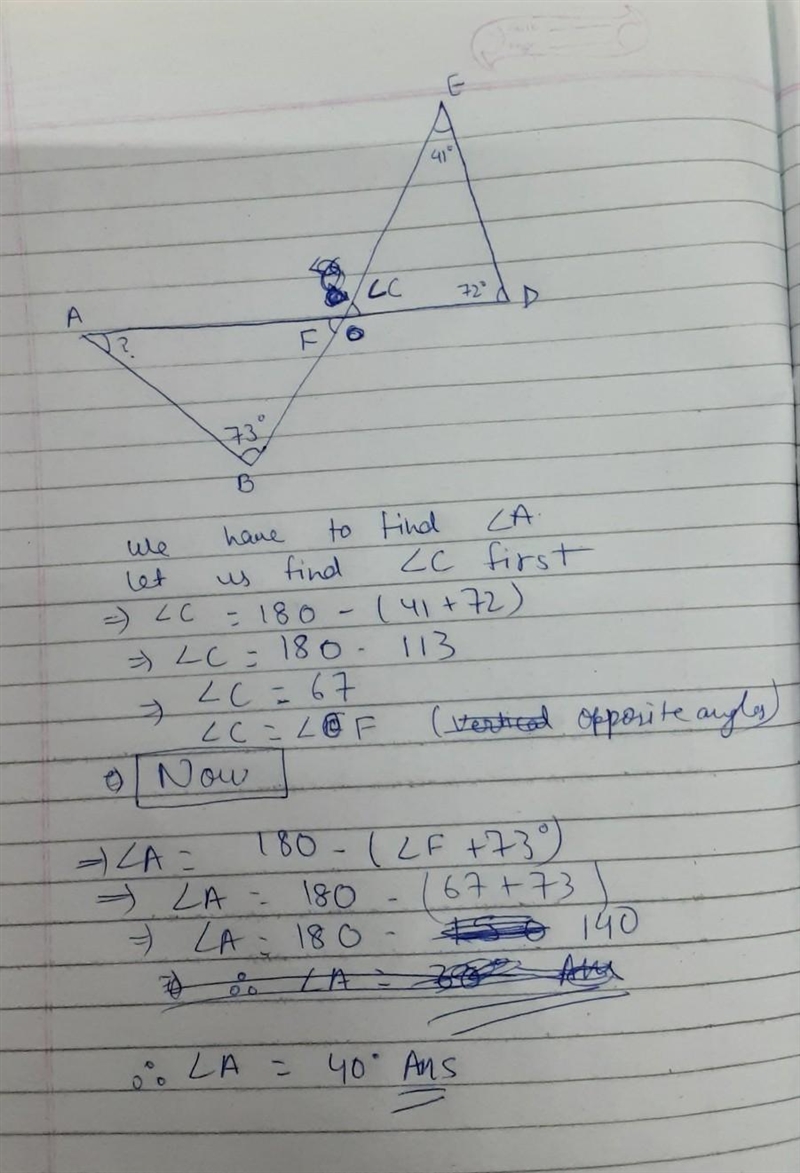 E
41°
∠C
72°
D
A
?
F
73°
B
We have to find ∠A.
Let us find ∠C first
⇒ ∠C = 180 - (41+72)
⇒ ∠C = 180 - 113
⇒ ∠C = 67
∠C = ∠F (vertical opposite angles)
Now
⇒ ∠A = 180 - (∠F + 73°)
⇒ ∠A = 180 - (67+73)
⇒ ∠A = 180 - 140
⇒ ∴ ∠A = Ans
∴ ∠A = 40° Ans